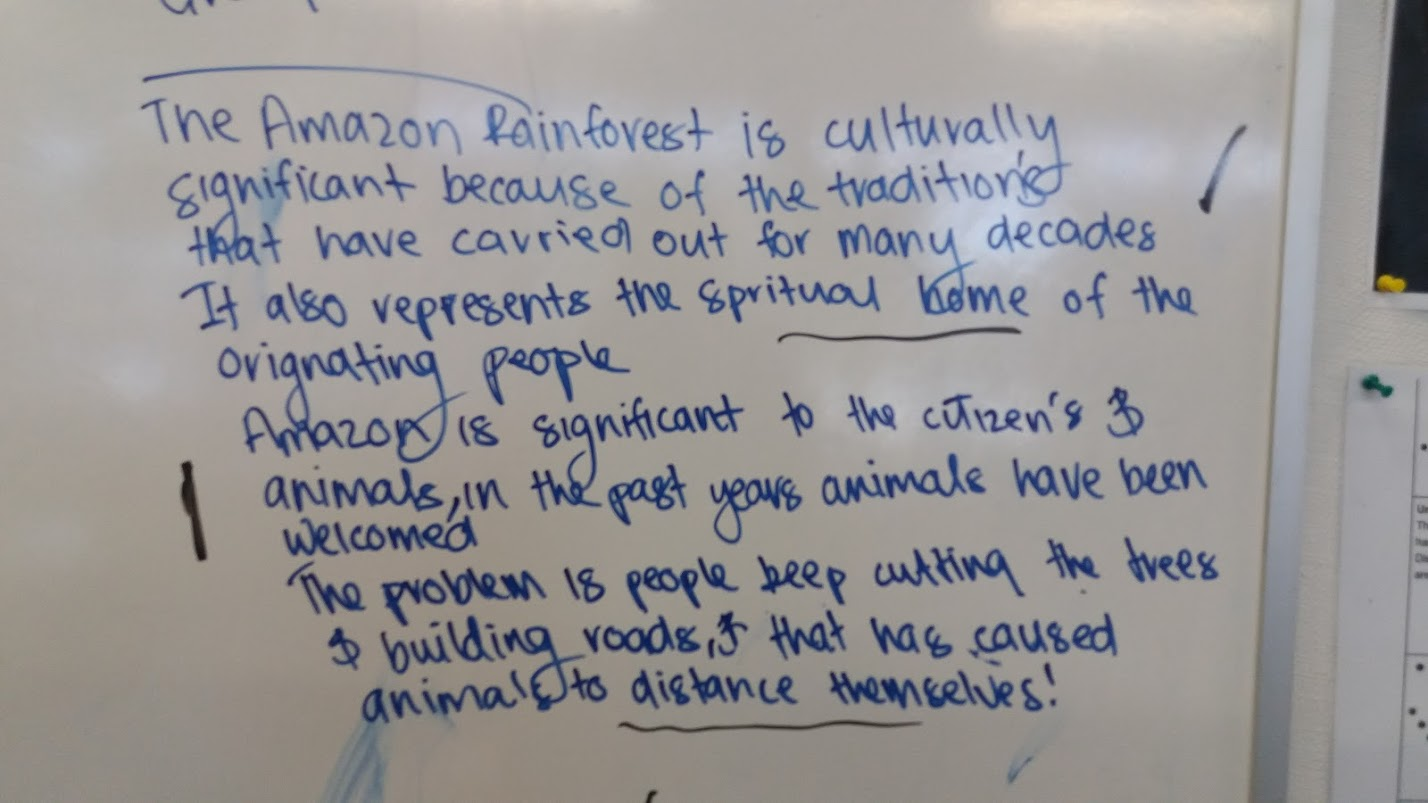 The Amazon Rainforest is culturally
significant because of the tradition's
that have carried out for many decades
It also represents the spritual home of the
orignating people
Amazon is significant to the citizen's $
animals, in the past years animals have been
welcomed
The problem is people keep cutting the trees
$ building roads, $ that has caused
animals to distance themselves!